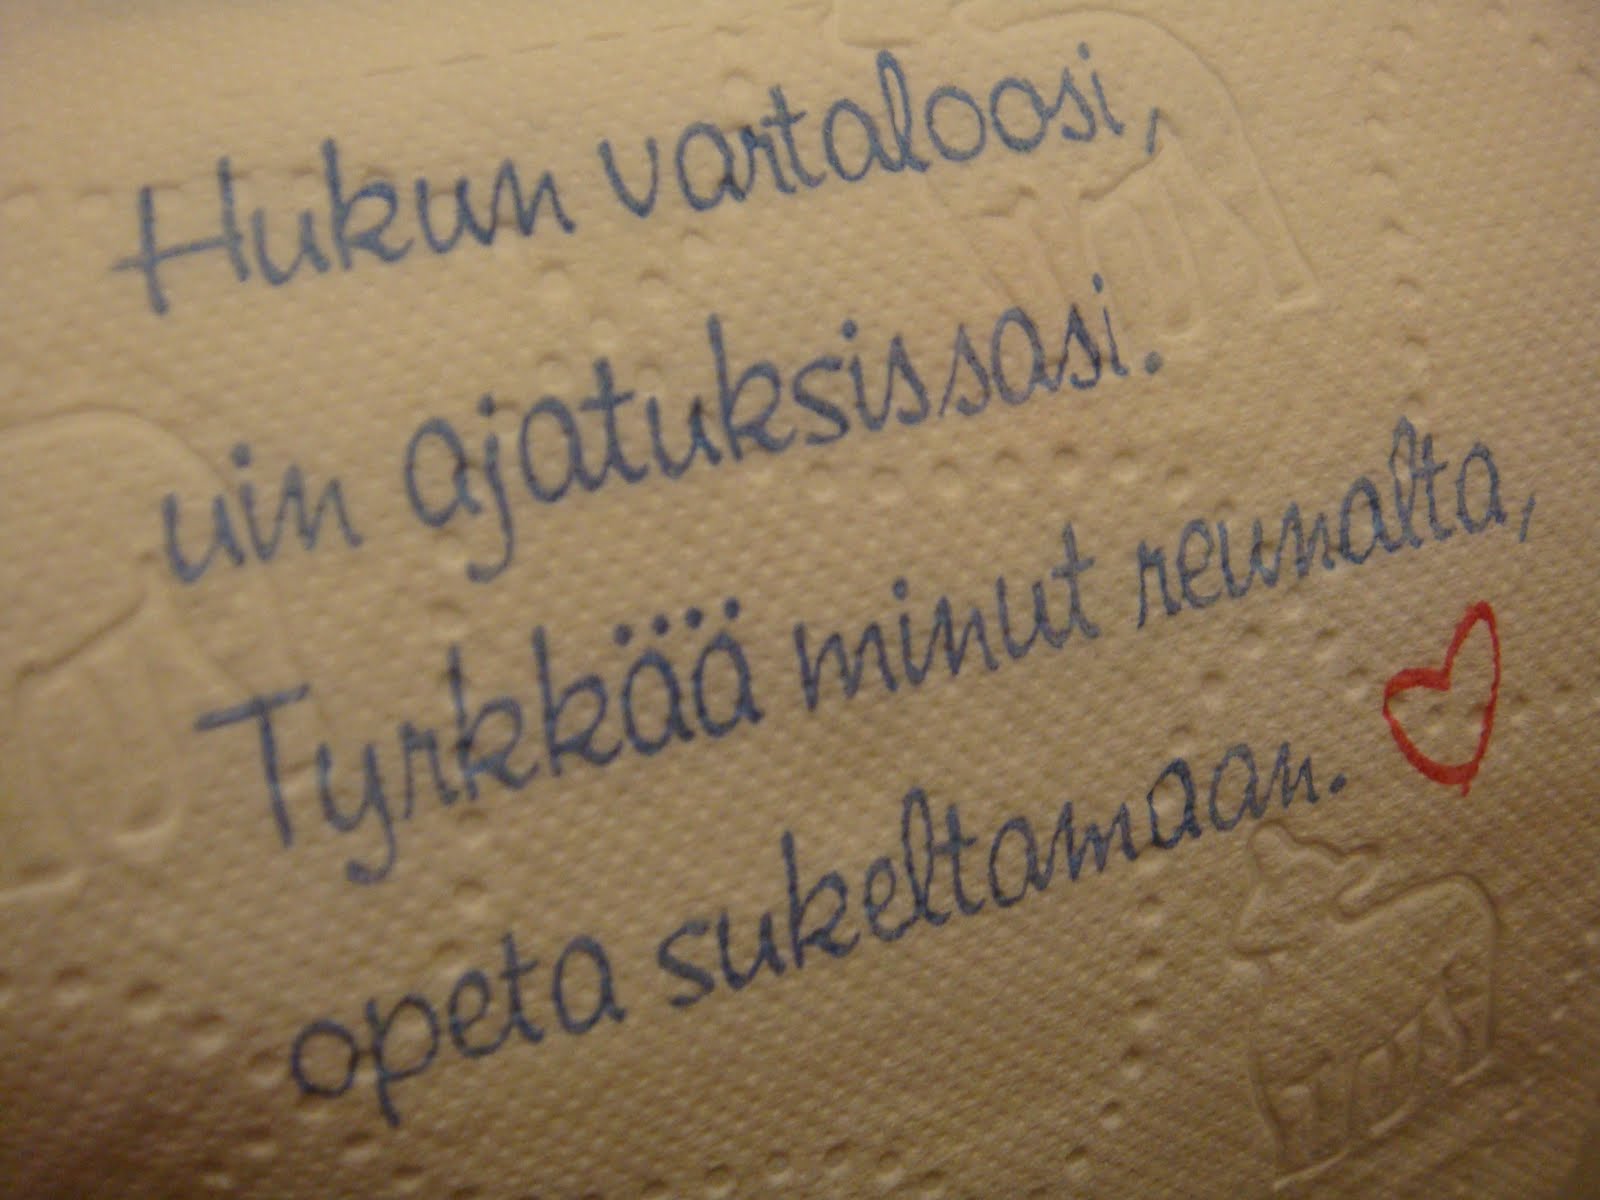 Hukun vartaloosi,
uin ajatuksissasi.
Tyrkkää minut reunalta,
opeta sukeltamaan.